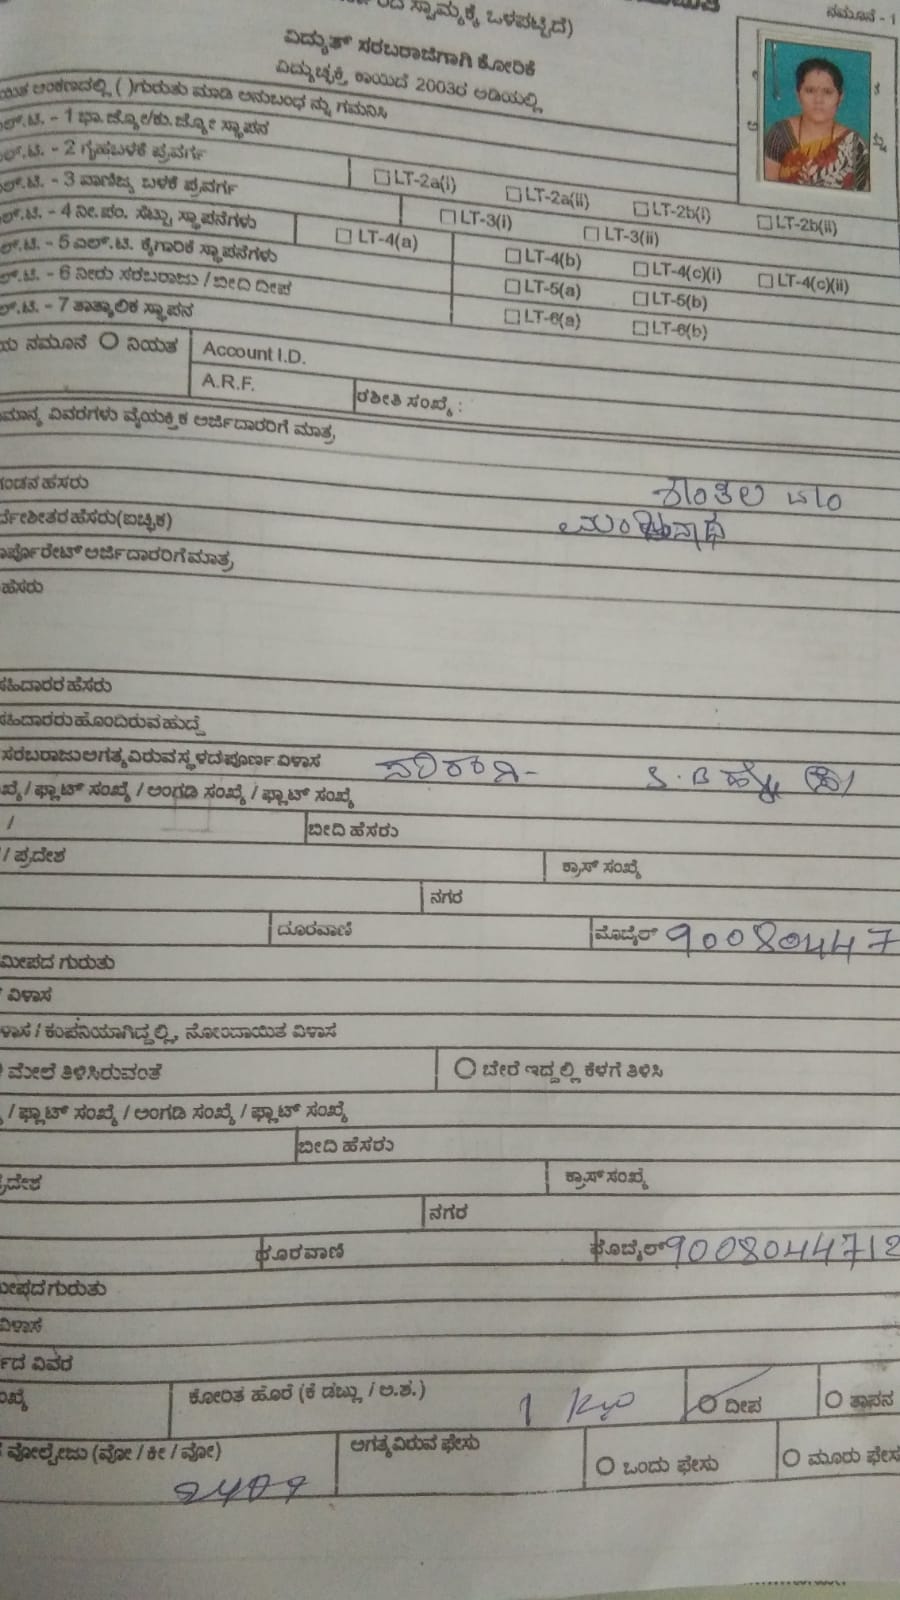 ಸ್ವಾಮ್ಯಕ್ಕೆ ಒಳಪಟ್ಟಿದೆ)
ನಮೂನೆ - 1
ವಿದ್ಯುತ್ ಸರಬರಾಜಿಗಾಗಿ ಕೋರಿಕೆ
ವಿದ್ಯುಚ್ಛಕ್ತಿ ಕಾಯಿದೆ 2003ರ ಅಡಿಯಲ್ಲಿ
ಅಂಕಣದಲ್ಲಿ ( )ಗುರುತು ಮಾಡಿ ಅನುಬಂಧ ನ್ನು ಗಮನಿಸಿ
ಲ್.ಟಿ. - 1 ಭಾ.ಜ್ಯೋ/ಕು.ಜ್ಯೋ ಸ್ಥಾಪನ
ಲ್.ಟಿ. - 2 ಗೃಹಬಳಕೆ ಪ್ರವರ್ಗ □ LT-2a(i) □ LT-2a(ii) □ LT-2b(i) □ LT-2b(ii)
ಲ್.ಟಿ. - 3 ವಾಣಿಜ್ಯ ಬಳಕೆ ಪ್ರವರ್ಗ □ LT-3(i) □ LT-3(ii)
ಲ್.ಟಿ. - 4 ನೀ.ಪಂ. ಸೆಟ್ಟು ಸ್ಥಾಪನೆಗಳು □ LT-4(a) □ LT-4(b) □ LT-4(c)(i) □ LT-4(c)(ii)
ಲ್.ಟಿ. - 5 ಎಲ್.ಟಿ. ಕೈಗಾರಿಕೆ ಸ್ಥಾಪನೆಗಳು □ LT-5(a) □ LT-5(b)
ಲ್.ಟಿ. - 6 ನೀರು ಸರಬರಾಜು / ಬೀದಿ ದೀಪ □ LT-6(a) □ LT-6(b)
ಲ್.ಟಿ. - 7 ತಾತ್ಕಾಲಿಕ ಸ್ಥಾಪನ
ಯ ನಮೂನೆ ○ ನಿಯತ Account I.D.
A.R.F. ರಶೀತಿ ಸಂಖ್ಯೆ :
ಮಾನ್ಯ ವಿವರಗಳು ವೈಯಕ್ತಿಕ ಅರ್ಜಿದಾರರಿಗೆ ಮಾತ್ರ
ಗಂಡನ ಹೆಸರು
ಹೆಸರು(ಐಚ್ಛಿಕ) ಮಂಜುನಾಥ
ಾರ್ಪೊರೇಟ್ ಅರ್ಜಿದಾರರಿಗೆ ಮಾತ್ರ
ಹೆಸರು
ಸಹಿದಾರರ ಹೆಸರು
ಸಹಿದಾರರು ಹೊಂದಿರುವ ಹುದ್ದೆ
ಸರಬರಾಜು ಅಗತ್ಯವಿರುವ ಸ್ಥಳದ ಪೂರ್ಣ ವಿಳಾಸ
ಖ್ಯೆ / ಫ್ಲಾಟ್ ಸಂಖ್ಯೆ / ಅಂಗಡಿ ಸಂಖ್ಯೆ / ಫ್ಲಾಟ್ ಸಂಖ್ಯೆ
/ ಬೀದಿ ಹೆಸರು
/ ಪ್ರದೇಶ ಕ್ರಾಸ್ ಸಂಖ್ಯೆ
ನಗರ
ದೂರವಾಣಿ ಮೊಬೈಲ್ 90080447
ಮೀಪದ ಗುರುತು
ವಿಳಾಸ
ಳಾಸ / ಕಂಪನಿಯಾಗಿದ್ದಲ್ಲಿ, ನೋಂದಾಯಿತ ವಿಳಾಸ
ಮೇಲೆ ತಿಳಿಸಿರುವಂತೆ ○ ಬೇರೆ ಇದ್ದಲ್ಲಿ ಕೆಳಗೆ ತಿಳಿಸಿ
/ ಫ್ಲಾಟ್ ಸಂಖ್ಯೆ / ಅಂಗಡಿ ಸಂಖ್ಯೆ / ಫ್ಲಾಟ್ ಸಂಖ್ಯೆ
ಬೀದಿ ಹೆಸರು
್ರದೇಶ ಕ್ರಾಸ್ ಸಂಖ್ಯೆ
ನಗರ
ದೂರವಾಣಿ ಮೊಬೈಲ್ 9008044712
ಮೀಪದ ಗುರುತು
ವಿಳಾಸ
ದ ವಿವರ
ಖ್ಯೆ ಕೋರಿತ ಹೊರೆ (ಕೆ ಡಬ್ಲು / ಅ.ಶ.) 1 ○ ದೀಪ ○ ತಾಪನ
ವೋಲ್ಟೇಜು (ವೋ / ಕೀ / ವೋ) ಅಗತ್ಯವಿರುವ ಫೇಸು ○ ಒಂದು ಫೇಸು ○ ಮೂರು ಫೇಸ